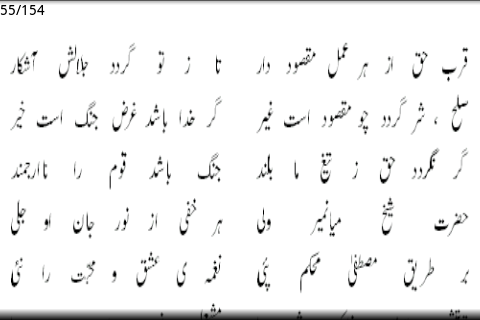 55/154
قرب حق از ہر عمل مقصود دار تا ز تو گردد جلالش آشکار
صلح ، شر گردد چو مقصود است غیر گر خدا باشد غرض جنگ است خیر
گر نگردد حق ز تیغ ما بلند جنگ باشد قوم را ناارجمند
حضرت شیخ میانمیر ولی ہر خفی از نور جان او جلی
بر طریق مصطفیٰ محکم پئی نغمہ ی عشق و محبّت را نئی